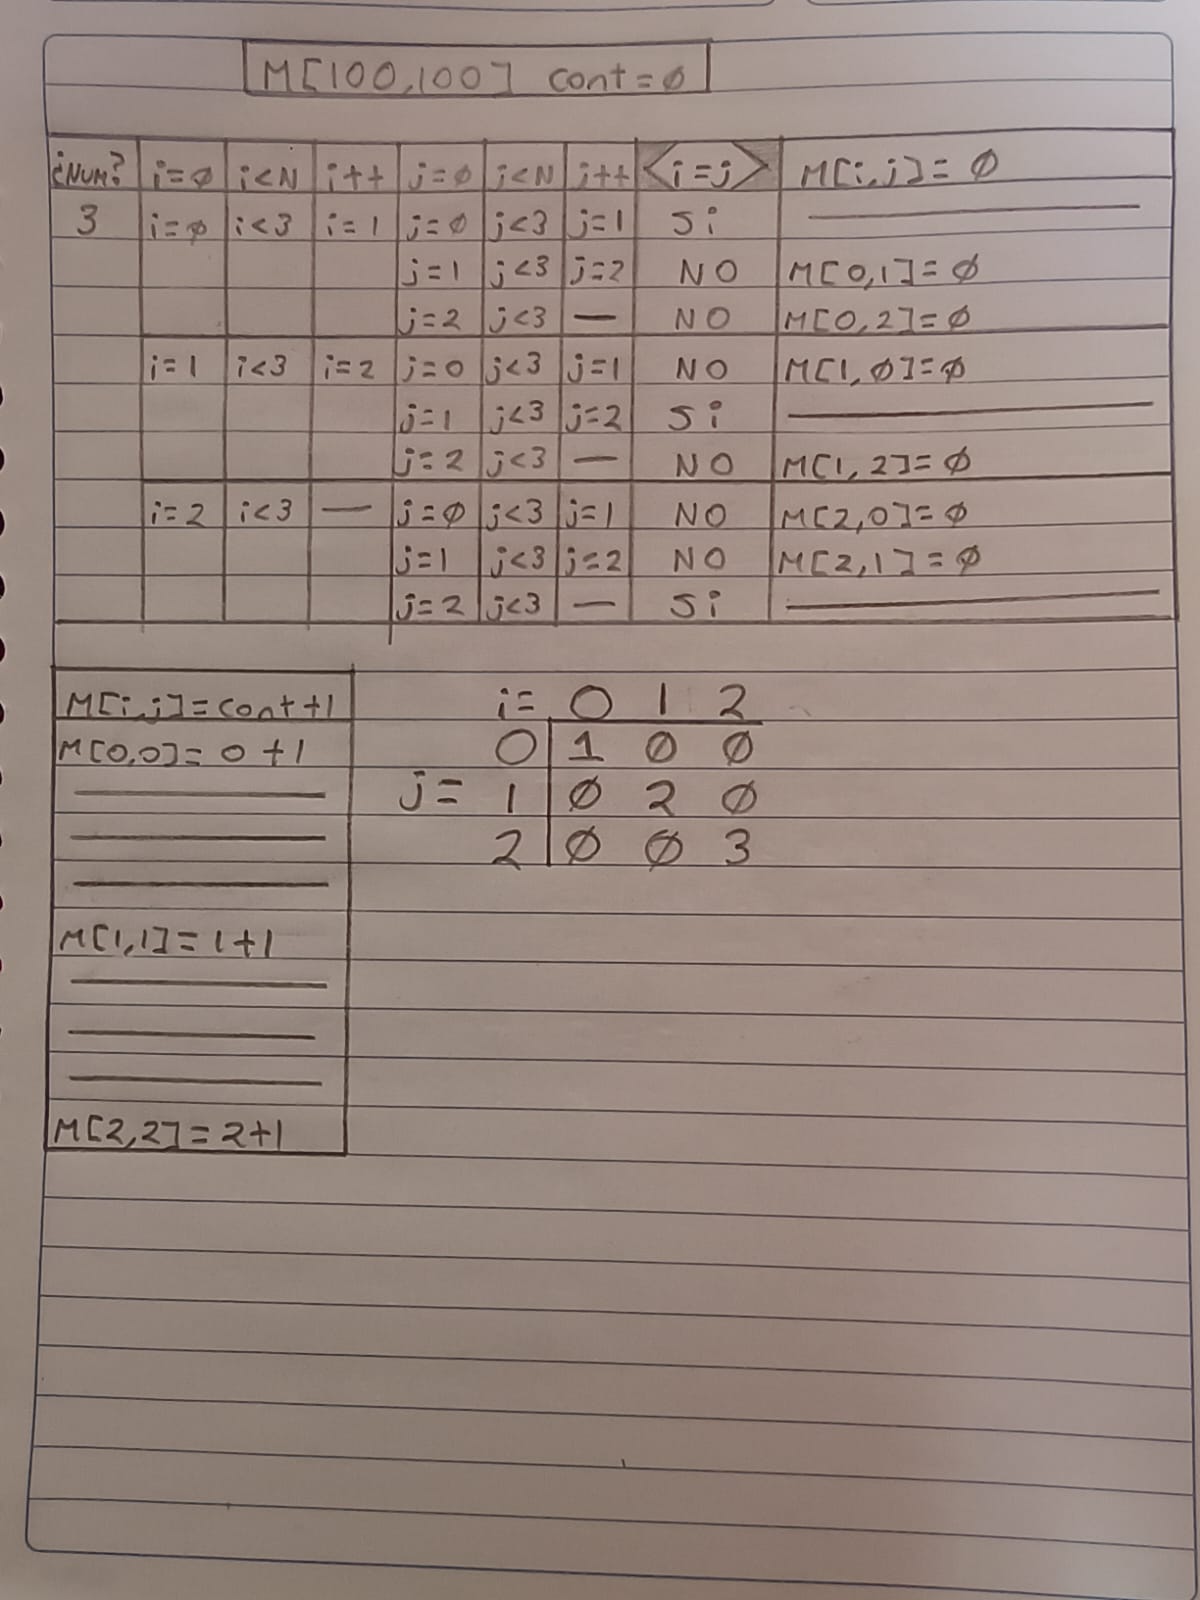 M[100,100] cont=Ø
¿NUM? i=Ø i<N i++ j=Ø j<N j++ <i=j> M[i,j]=Ø
3 i=Ø i<3 i=1 j=Ø j<3 j=1 Si ——
j=1 j<3 j=2 NO M[0,1]=Ø
j=2 j<3 — NO M[0,2]=Ø
i=1 i<3 i=2 j=0 j<3 j=1 NO M[1,Ø]=Ø
j=1 j<3 j=2 Si ——
j=2 j<3 — NO M[1,2]=Ø
i=2 i<3 — j=Ø j<3 j=1 NO M[2,0]=Ø
j=1 j<3 j=2 NO M[2,1]=Ø
j=2 j<3 — Si ——
M[i,j]=cont+1
M[0,0]=0+1
——
——
——
M[1,1]=1+1
——
——
——
M[2,2]=2+1
i= 0 1 2
0 1 Ø Ø
j= 1 Ø 2 Ø
2 Ø Ø 3